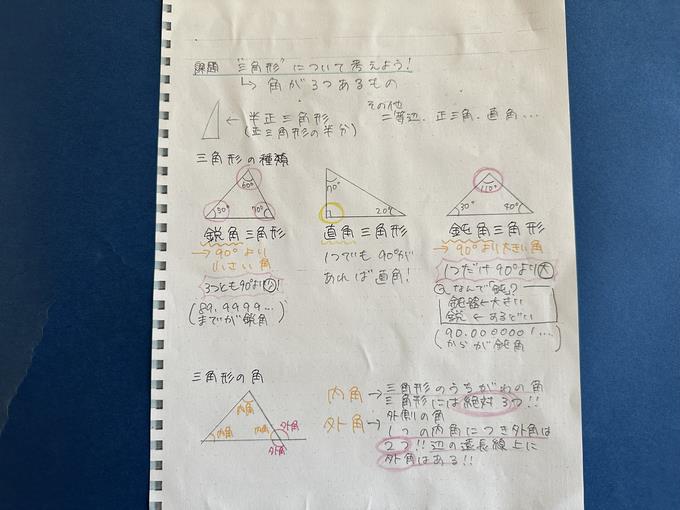 課題 "三角形"について考えよう!
↳ 角が3つあるもの
← 半正三角形
(正三角形の半分)
その他
二等辺、正三角、直角…
三角形の種類
60°
50°
70°
70°
20°
110°
30°
40°
鋭角三角形
→ 90°より
小さい角
3つとも90°より小!
(89.9999…
までが鋭角)
直角三角形
1つでも90°が
あれば直角!
鈍角三角形
→ 90°より大きい角
1つだけ90°より大
Q なんで「鈍」?
鈍 ← 大きい
鋭 ← あるどい
(90.0000001…
からが鈍角)
三角形の角
内角
内角
内角
外角
外角
内角 → 三角形のうちがわの角
三角形には絶対3つ!!
外角 → 外側の角
1つの内角につき外角は
2つ!!辺の延長線上に
外角はある!!